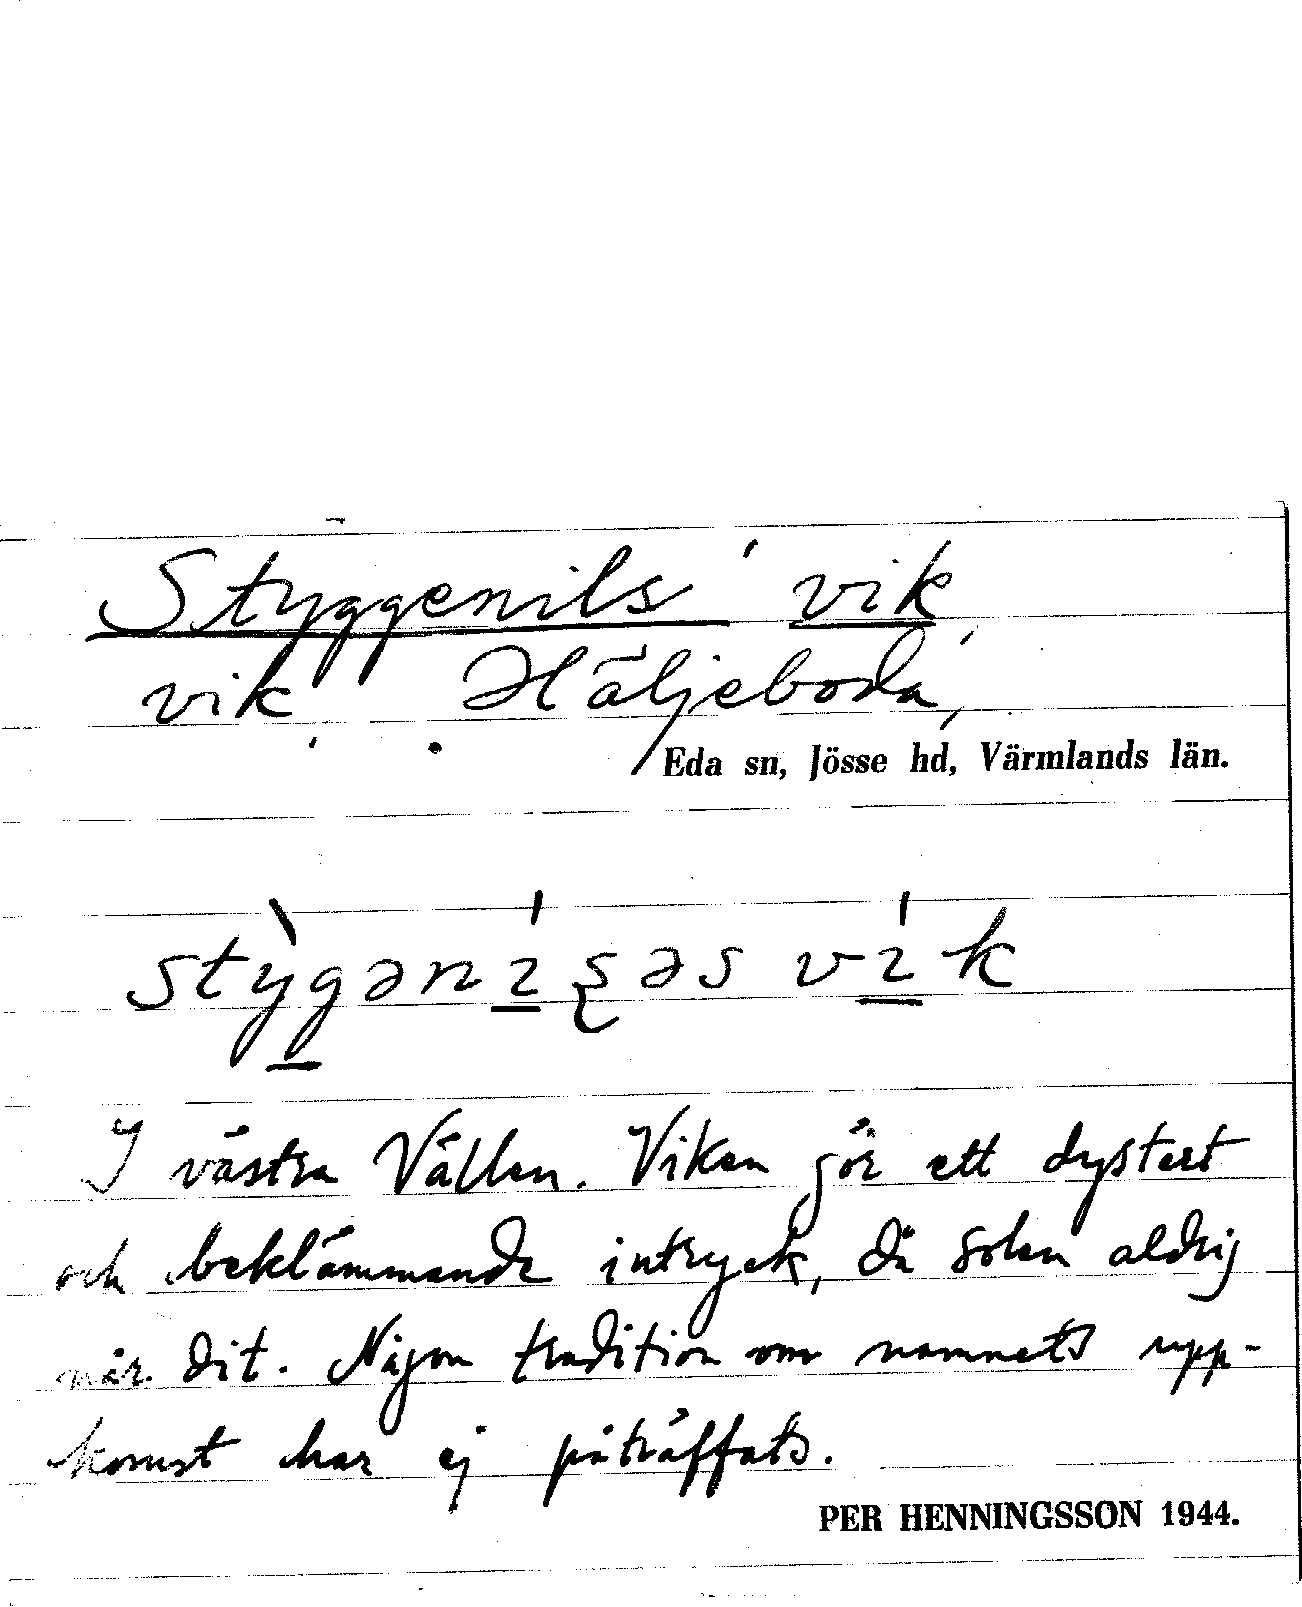 Styggenils' vik,
vik, Häljeboda,
Eda sn, Jösse hd, Värmlands län.
I västra Vällen. Viken gör ett dystert
och beklämmande intryck, då solen aldrig
når dit. Någon tradition om namnets upp-
komst har ej påträffats.
PER HENNINGSSON 1944.